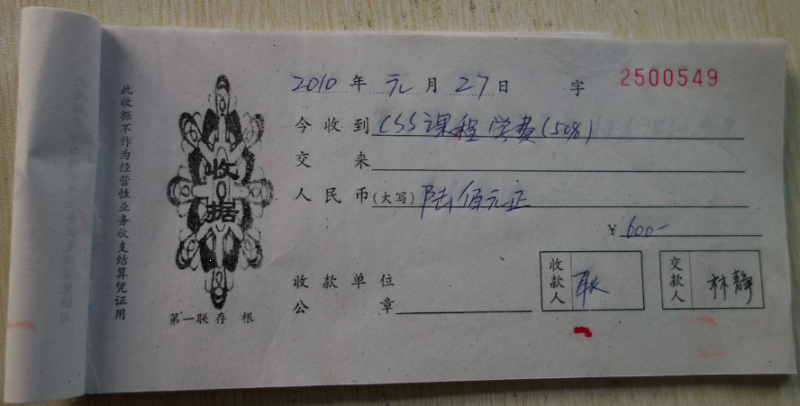 此收据不作为经营性业务收支结算凭证用
收据
第一联存根
2010年元月27日 字 2500549
今收到 CSS课程学费(50%)
交来
人民币(大写) 陆佰元正
¥ 600-
收款单位
公章
收款人
交款人 林静